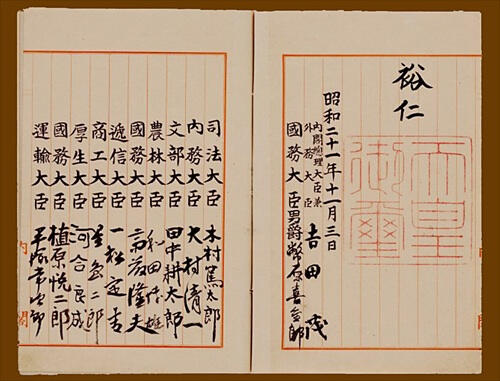 裕仁
昭和二十一年十一月三日
内閣総理大臣兼
外務大臣 吉田茂
国務大臣 男爵 幣原喜重郎
司法大臣 木村篤太郎
内務大臣 大村清一
文部大臣 田中耕太郎
農林大臣 和田博雄
国務大臣 斎藤隆夫
逓信大臣 一松定吉
商工大臣 星島二郎
厚生大臣 河合良成
国務大臣 植原悦二郎
運輸大臣 平塚常次郎
天皇
御璽
内
閣